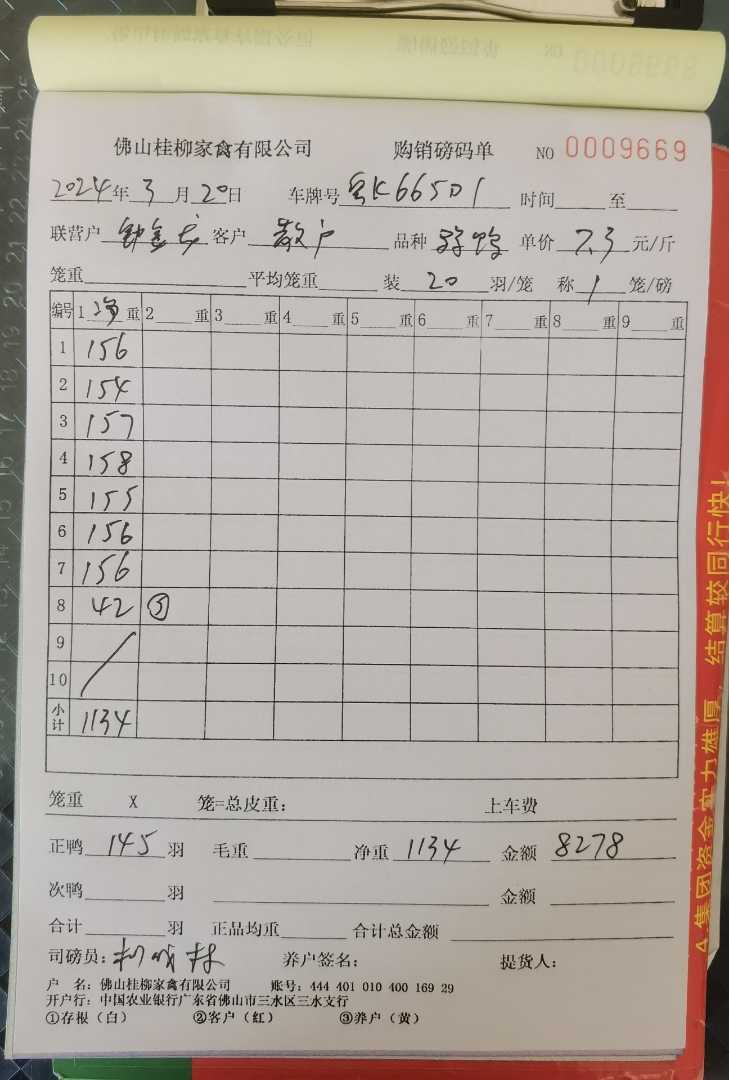 佛山桂柳家禽有限公司 购销磅码单 NO 0009669
2024年3月20日 车牌号 粤K66501 时间 至
联营户 客户 散户 品种 单价 7.3 元/斤
笼重 平均笼重 装 20 羽/笼 称 1 笼/磅
编号 1 净 重 2 重 3 重 4 重 5 重 6 重 7 重 8 重 9 重
1 156
2 154
3 157
4 158
5 155
6 156
7 156
8 42 ⑤
9
10
小计 1134
笼重 X 笼=总皮重: 上车费
正鸭 145 羽 毛重 净重 1134 金额 8278
次鸭 羽 金额
合计 羽 正品均重 合计总金额
司磅员: 养户签名: 提货人:
户 名: 佛山桂柳家禽有限公司 账号: 444 401 010 400 169 29
开户行: 中国农业银行广东省佛山市三水区三水支行
①存根（白） ②客户（红） ③养户（黄）
集团资金实力雄厚、结算较同行快!